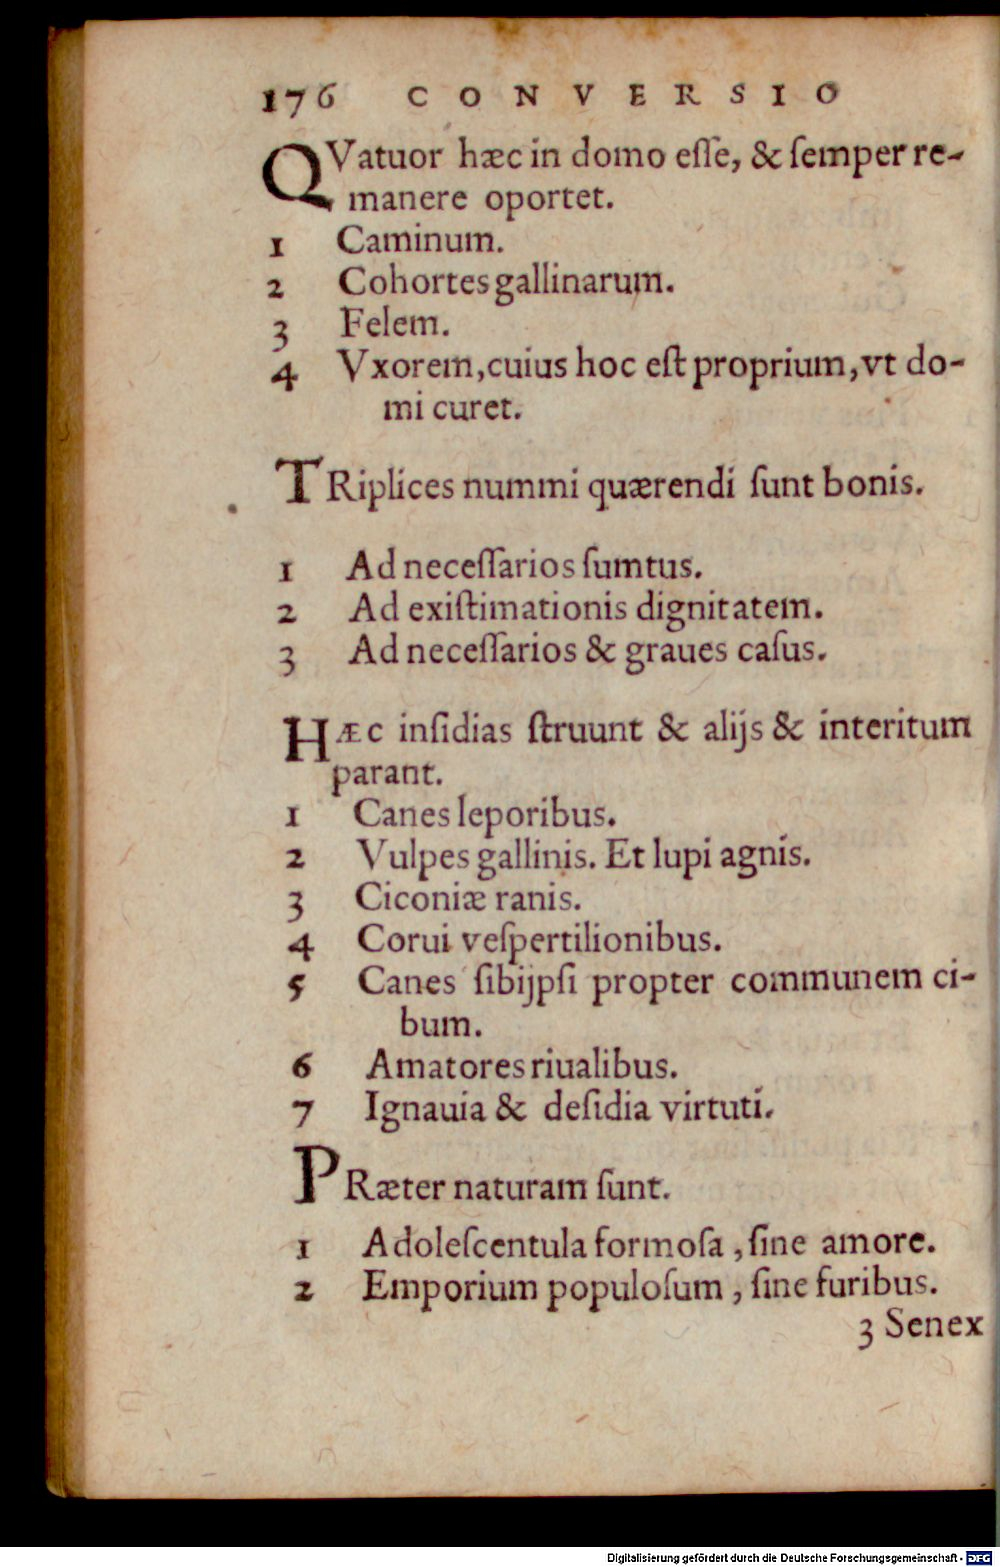 176 CONVERSIO
QVatuor hæc in domo eſſe, & ſemper re-
manere oportet.
1 Caminum.
2 Cohortes gallinarum.
3 Felem.
4 Vxorem, cuius hoc eſt proprium, vt do-
mi curet.
TRiplices nummi quærendi ſunt bonis.
1 Ad neceſſarios ſumtus.
2 Ad exiſtimationis dignitatem.
3 Ad neceſſarios & graues caſus.
HÆC inſidias ſtruunt & alijs & interitum
parant.
1 Canes leporibus.
2 Vulpes gallinis. Et lupi agnis.
3 Ciconiæ ranis.
4 Corui veſpertilionibus.
5 Canes ſibijpſi propter communem ci-
bum.
6 Amatores riualibus.
7 Ignauia & deſidia virtuti.
PRæter naturam ſunt.
1 Adoleſcentula formoſa, ſine amore.
2 Emporium populoſum, ſine furibus.
3 Senex
Digitalisierung gefördert durch die Deutsche Forschungsgemeinschaft - DFG